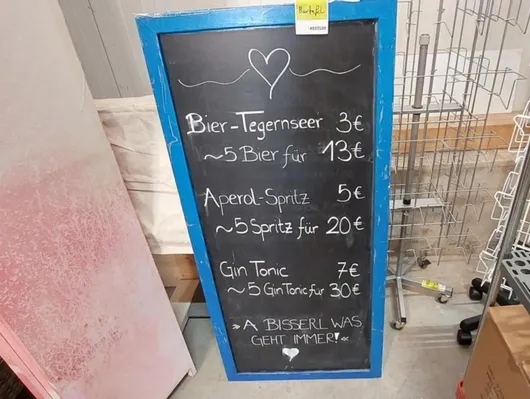 Bier-Tegernseer 3€
~5 Bier für 13€
Aperol-Spritz 5€
~5 Spritz für 20€
Gin Tonic 7€
~5 Gin Tonic für 30€
»A BISSERL WAS
GEHT IMMER!«